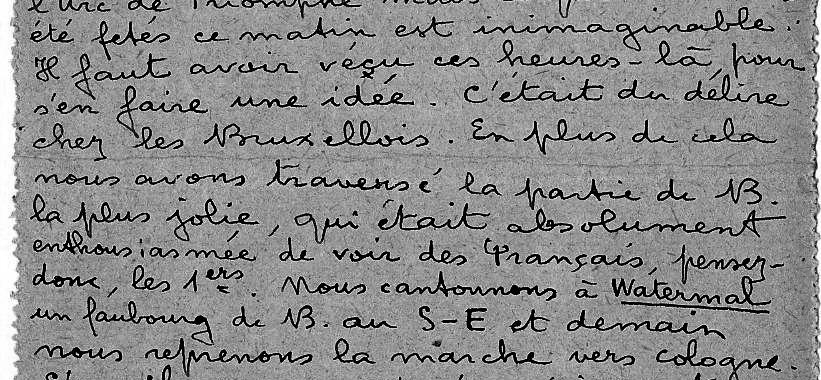 l'Arc de Triomphe mais
été fetés ce matin est inimaginable.
Il faut avoir véçu ces heures-là, pour
s'en faire une idée. C'était du délire
chez les Bruxellois. En plus de cela
nous avons traversé la partie de B.
la plus jolie, qui était absolument
enthousiasmée de voir des Français, pensez-
donc, les 1ers. Nous cantonnons à Watermal
un faubourg de B. au S-E et demain
nous reprenons la marche vers cologne.